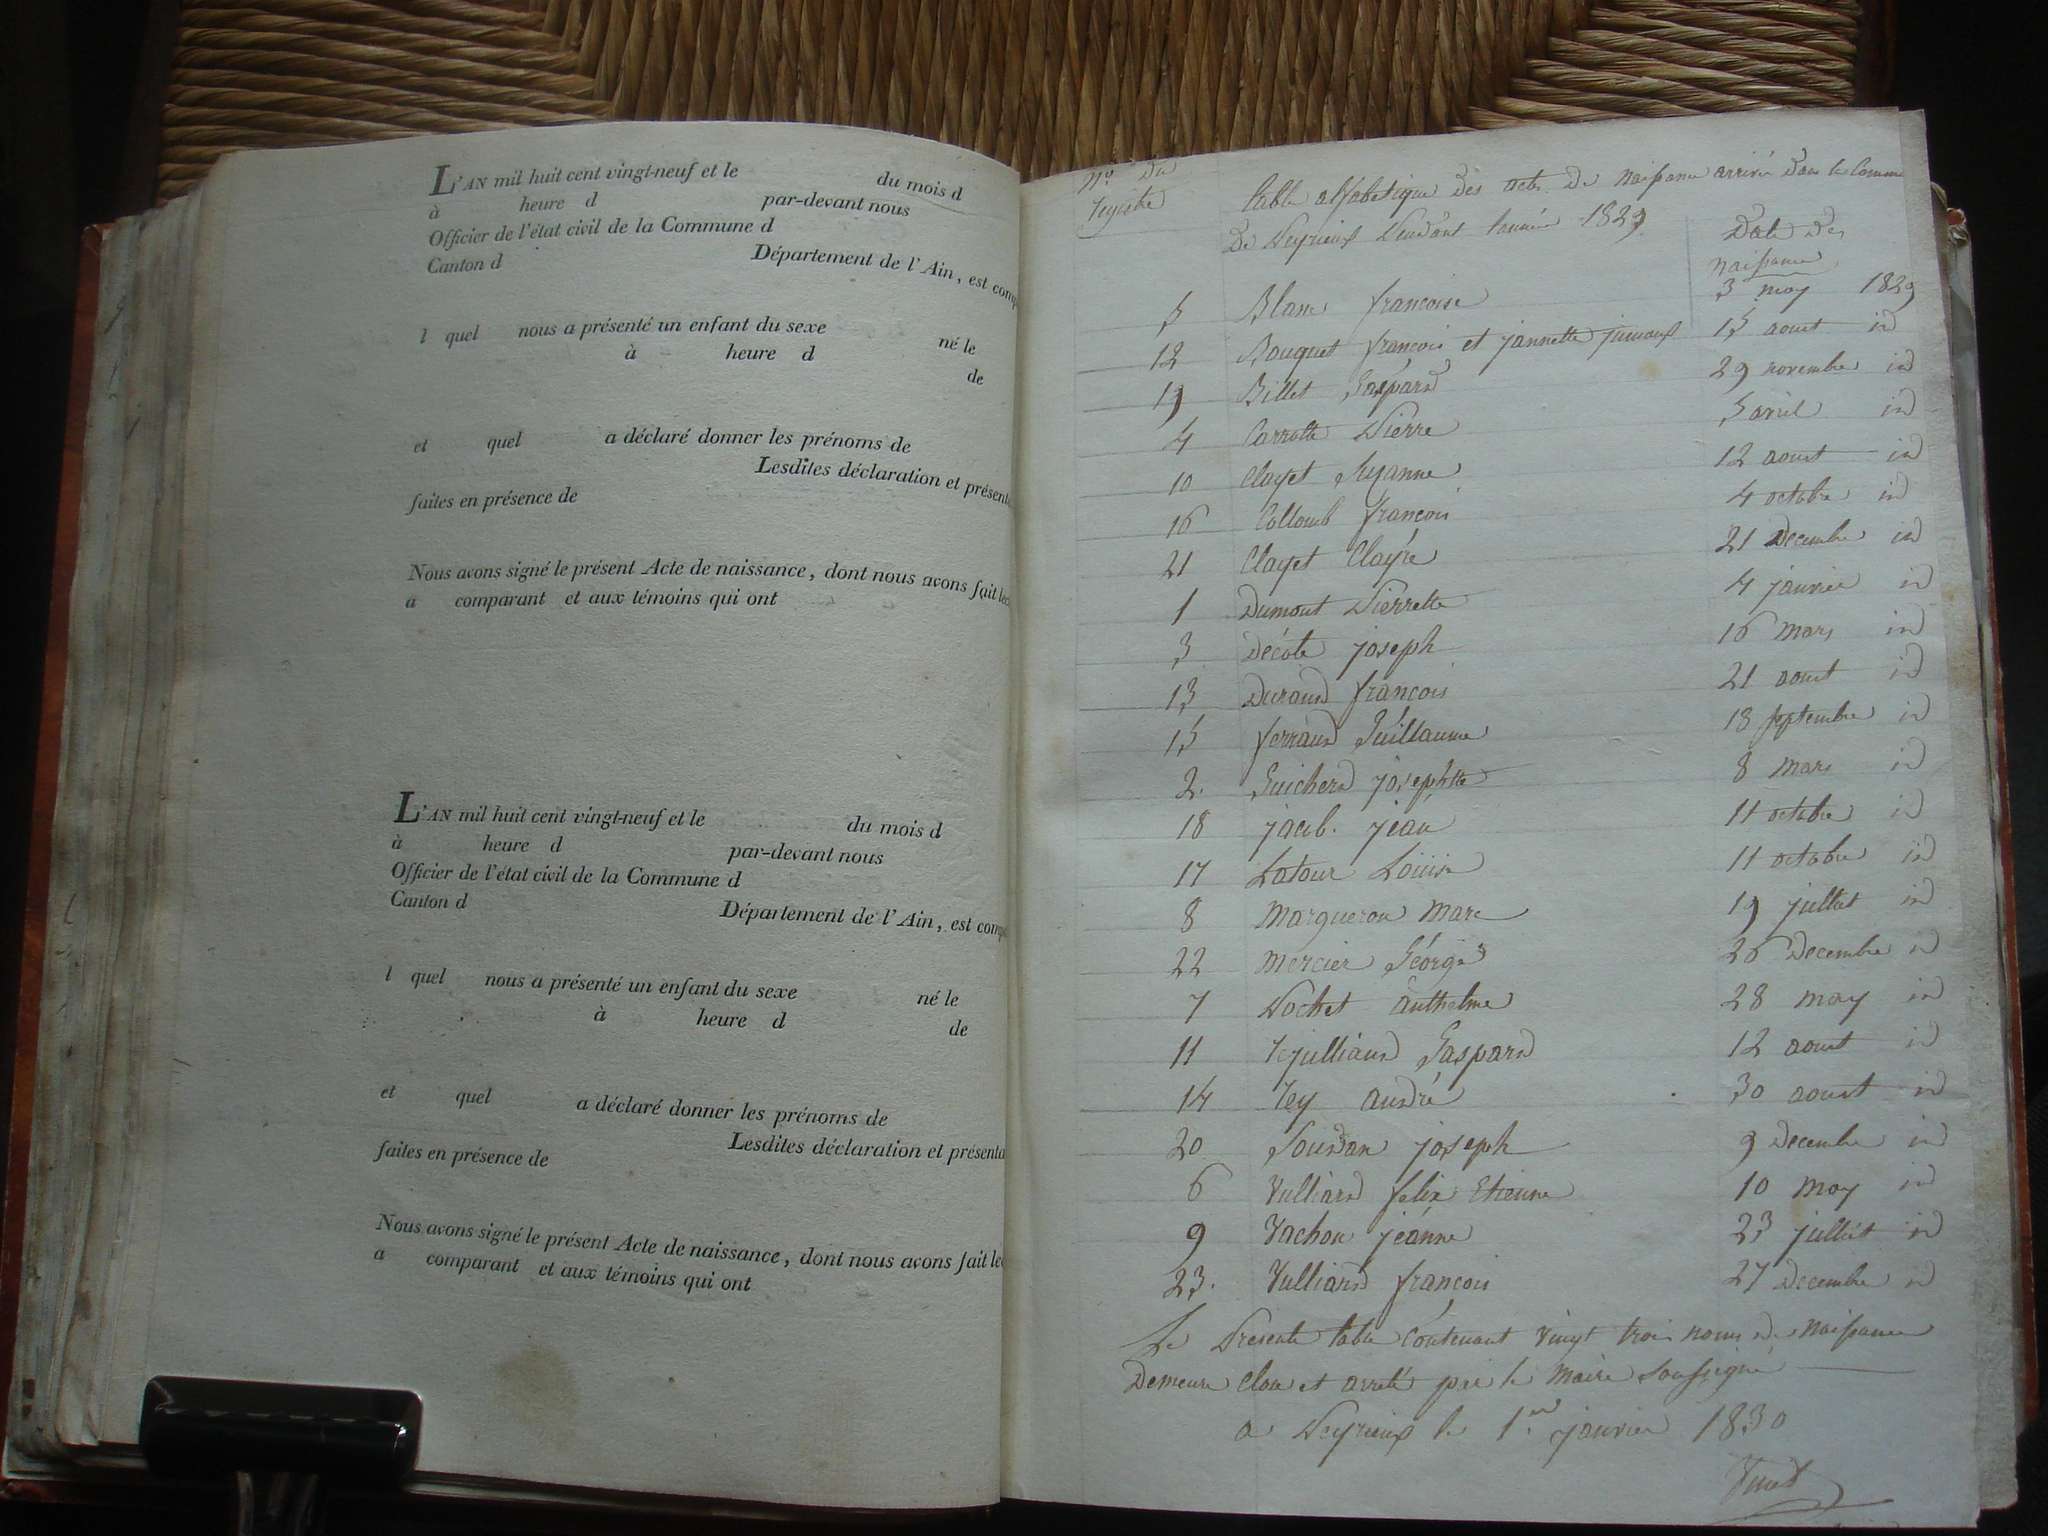 L'AN mil huit cent vingt-neuf et le du mois d
à heure d par-devant nous
Officier de l'état civil de la Commune d
Canton d Département de l'Ain, est comp
l quel nous a présenté un enfant du sexe né le
à heure d de
et quel a déclaré donner les prénoms de
Lesdites déclaration et présent
faites en présence de
Nous avons signé le présent Acte de naissance, dont nous avons fait lec
a comparant et aux témoins qui ont
L'AN mil huit cent vingt-neuf et le du mois d
à heure d par-devant nous
Officier de l'état civil de la Commune d
Canton d Département de l'Ain, est comp
l quel nous a présenté un enfant du sexe né le
à heure d de
et quel a déclaré donner les prénoms de
Lesdites déclaration et présenta
faites en présence de
Nous avons signé le présent Acte de naissance, dont nous avons fait lec
a comparant et aux témoins qui ont
No du
registre
table alfabetique des actes de naissance arrivée dans la Commune
de Peyrieux pendant l'année 1829
Date des
naissance
5 Blanc francoise 3 may 1829
12 Bouquet francois et jannette jumaux 15 aoust id
19 Billet Gaspard 29 novembre id
4 Carrotte Pierre 5 avril id
10 Clayet Suzanne 12 aoust id
16 Collomb francois 4 octobre id
21 Clayet Clayre 21 Decembre id
1 Dumont Pierrette 4 janvier id
3 Décote joseph 16 mars id
13 Durand francois 21 aoust id
15 ferrand Guillaume 18 septembre id
2 Guicherd josephtte 8 mars id
18 jacob jean 11 octobre id
17 Latour Louise 11 octobre id
8 Margueron Marc 19 jullet id
22 Mercier Géorge 26 Decembre id
7 Pochet anthelme 28 may id
11 Rejulliand Gaspard 12 aoust id
14 Rey andré 30 aoust id
20 Soudan joseph 9 Decembre id
6 Vulliard felix Etienne 10 may id
9 Vachon jeanne 23 jullet id
23. Vulliard francois 27 Decembre id
Le Presente table Contenant vingt trois noms de Naissance
Demeure Clos et arreté par le Maire Soussigné
a Peyrieux le 1er janvier 1830